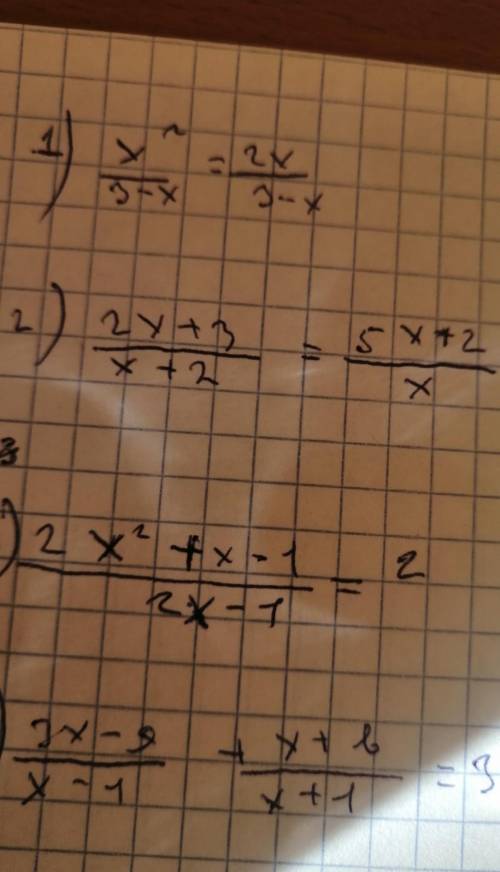 1) x²/(3-x) = 2x/(3-x)
2) (2x+3)/(x+2) = (5x+2)/x
3
) (2x²+x-1)/(2x-1) = 2
) (3x-9)/(x-1) + (x+6)/(x+1) = 3